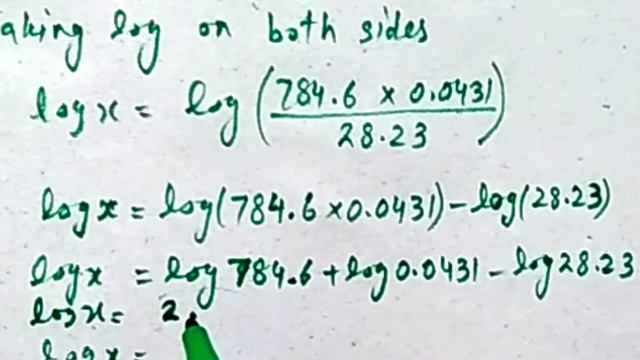 aking log on both sides
log x = log (784.6 x 0.0431 / 28.23)
log x = log(784.6 x 0.0431) - log(28.23)
log x = log 784.6 + log 0.0431 - log 28.23
log x = 2.
log x =